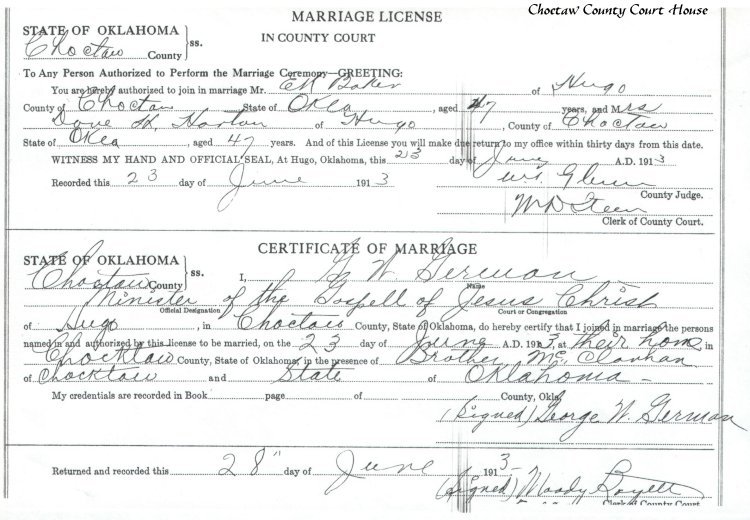 MARRIAGE LICENSE
Choctaw County Court House
STATE OF OKLAHOMA
IN COUNTY COURT
Choctaw County ss.
To Any Person Authorized to Perform the Marriage Ceremony—GREETING:
You are hereby authorized to join in marriage Mr. E R Baker of Hugo
County of Choctaw State of Okla, aged 47 years, and Mrs
Horton of Hugo, County of Choctaw
State of Okla, aged 47 years. And of this License you will make due return to my office within thirty days from this date.
WITNESS MY HAND AND OFFICIAL SEAL, At Hugo, Oklahoma, this 23 day of June A.D. 1913
Recorded this 23 day of June 1913 W.T. Glenn
County Judge.
Steen
Clerk of County Court.
CERTIFICATE OF MARRIAGE
STATE OF OKLAHOMA
Choctaw County ss. I, G W German
Name
Minister of the Gospell of Jesus Christ
Official Designation Court or Congregation
of Hugo, in Choctaw County, State of Oklahoma, do hereby certify that I joined in marriage the persons
named in and authorized by this license to be married, on the 23 day of June A.D. 1913, at their home in
Chocktaw County, State of Oklahoma, in the presence of Brother Mc Clanhan
of Chocktaw and State of Oklahoma –
My credentials are recorded in Book page of County, Okla.
(Signed) George W. German
Returned and recorded this 28" day of June 1913
(Signed) Moody
Clerk of County Court